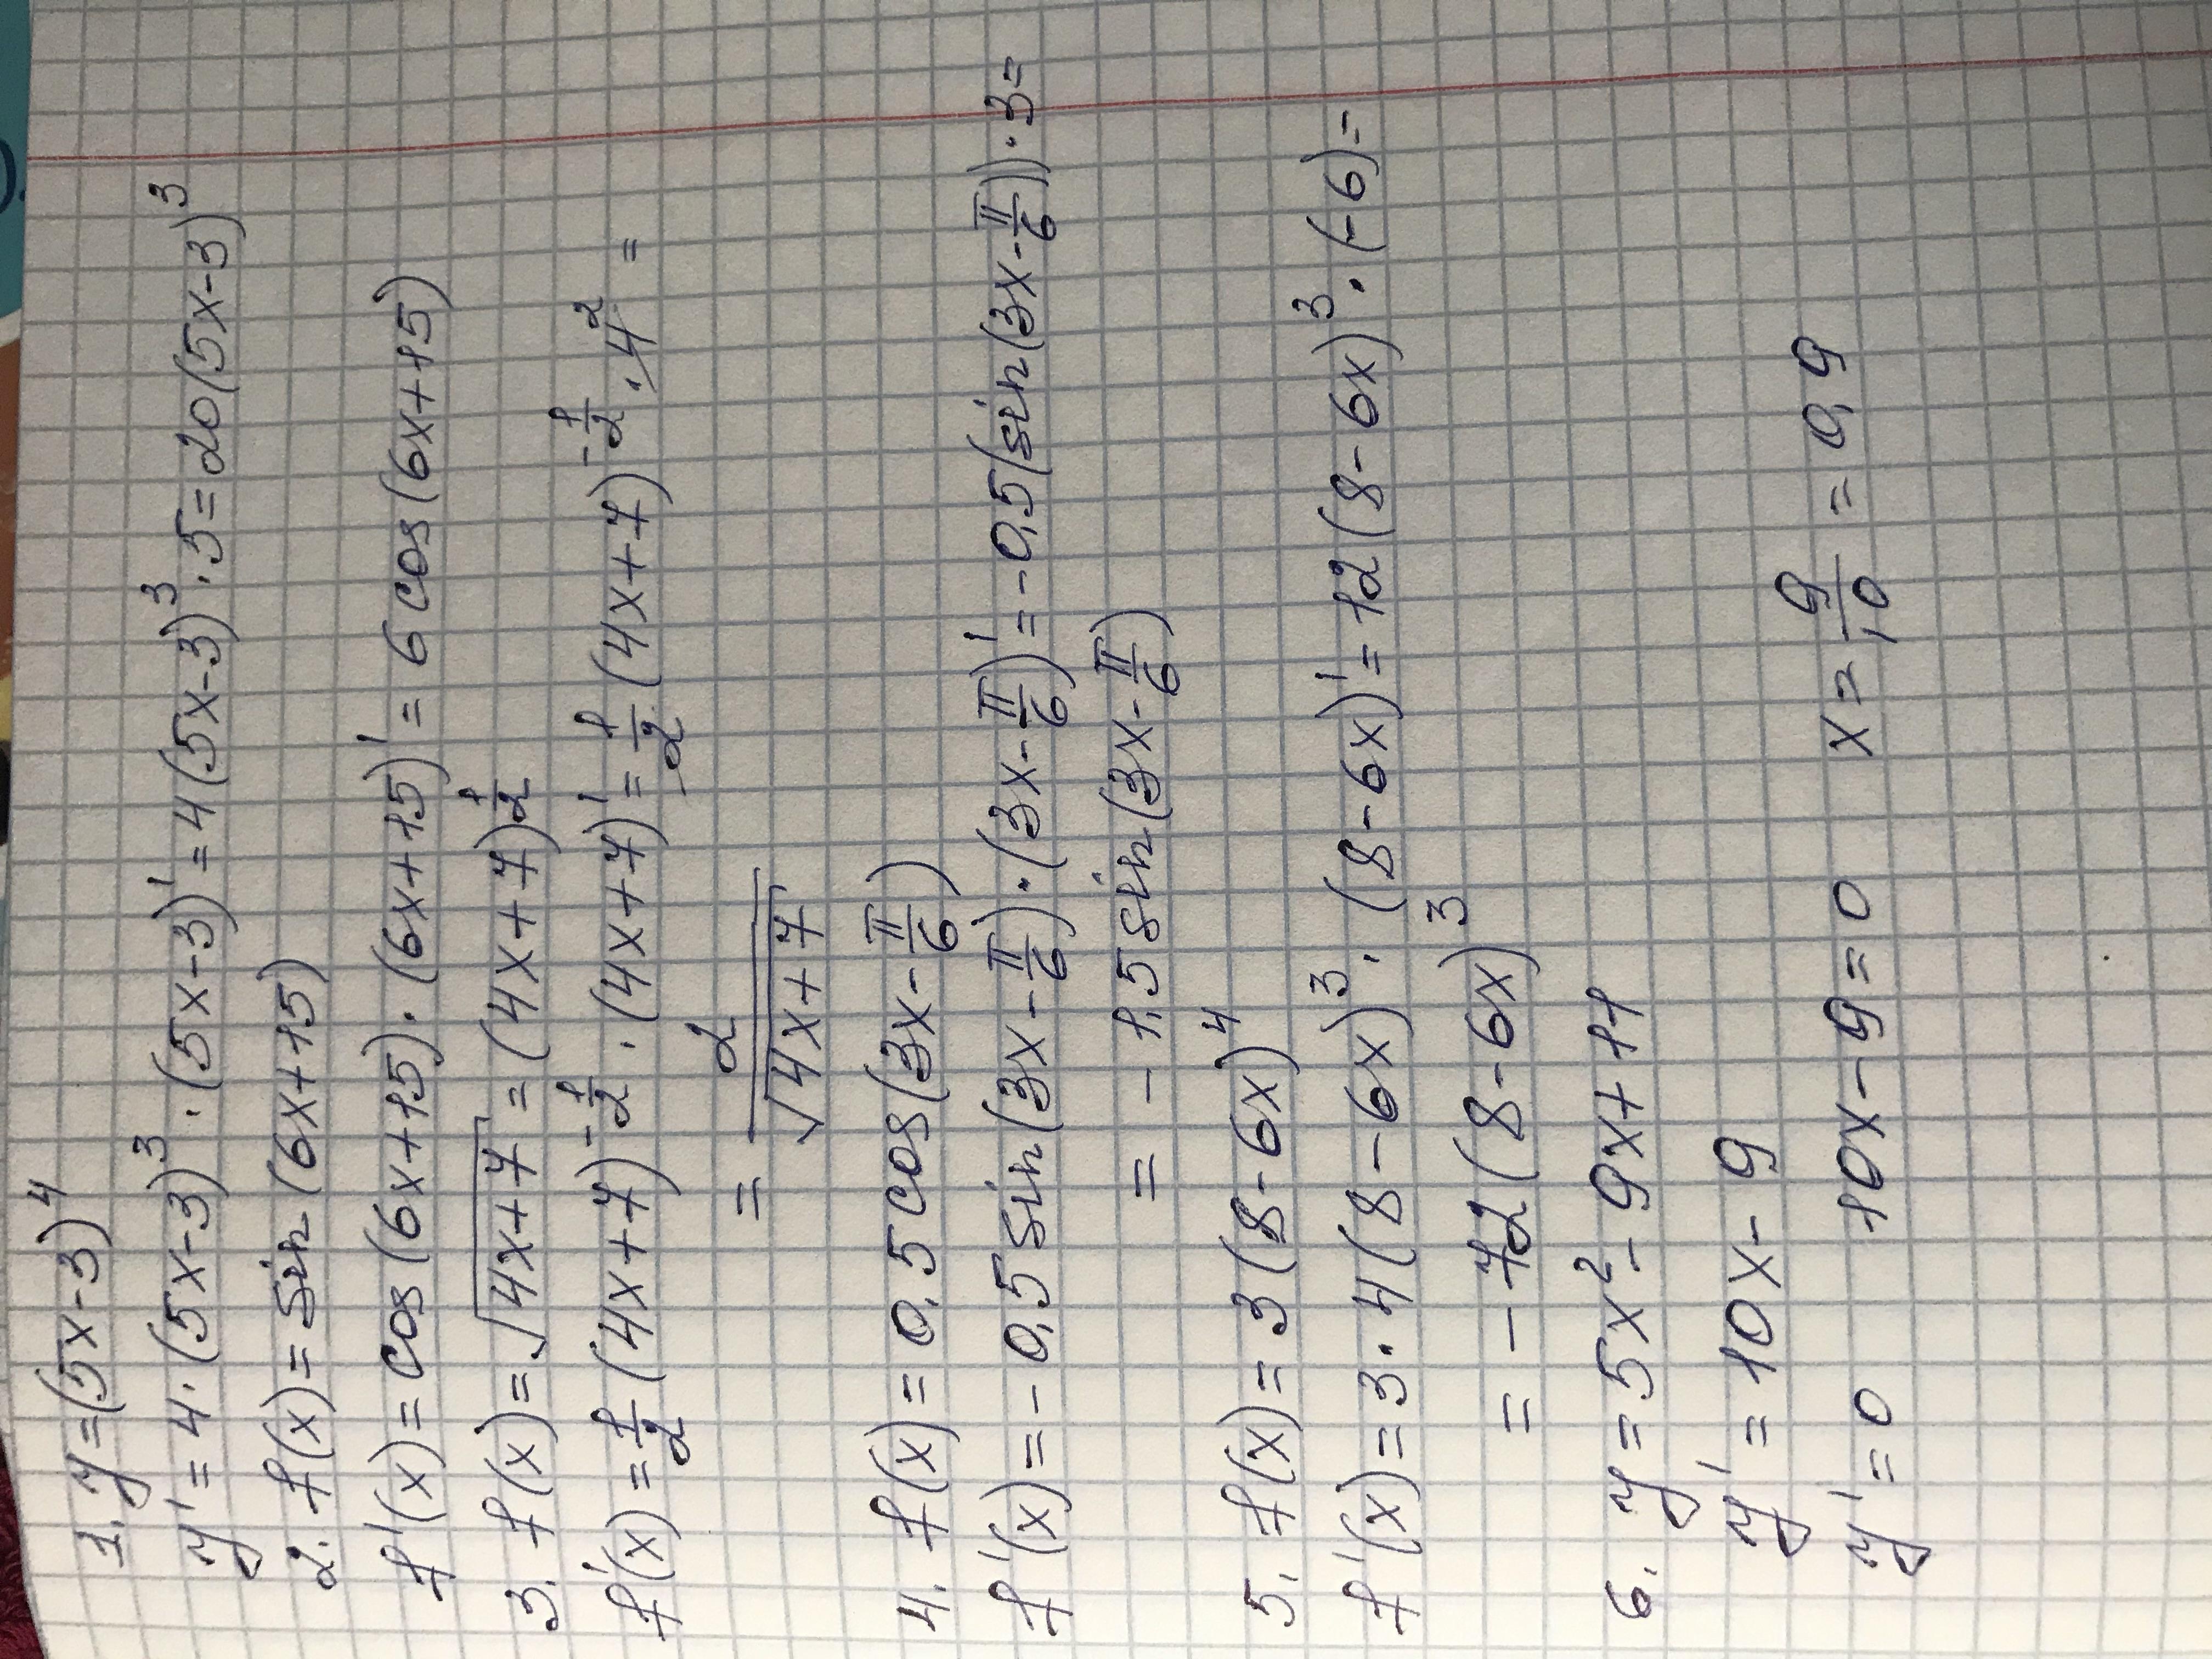 1. y=(5x-3)⁴
y'=4·(5x-3)³·(5x-3)'=4(5x-3)³·5=20(5x-3)³
2. f(x)=sin(6x+15)
f'(x)=cos(6x+15)·(6x+15)'=6cos(6x+15)
3. f(x)=√(4x+7)=(4x+7)^(1/2)
f'(x)=1/2(4x+7)^(-1/2)·(4x+7)'=1/2(4x+7)^(-1/2)·4²=
=2/√(4x+7)
4. f(x)=0,5cos(3x-π/6)
f'(x)=-0,5sin(3x-π/6)·(3x-π/6)'=-0,5(sin(3x-π/6))·3=
=-1,5sin(3x-π/6)
5. f(x)=3(8-6x)⁴
f'(x)=3·4(8-6x)³·(8-6x)'=12(8-6x)³·(-6)=
=-72(8-6x)³
6. y=5x²-9x+11
y'=10x-9
y'=0 10x-9=0 x=9/10=0,9